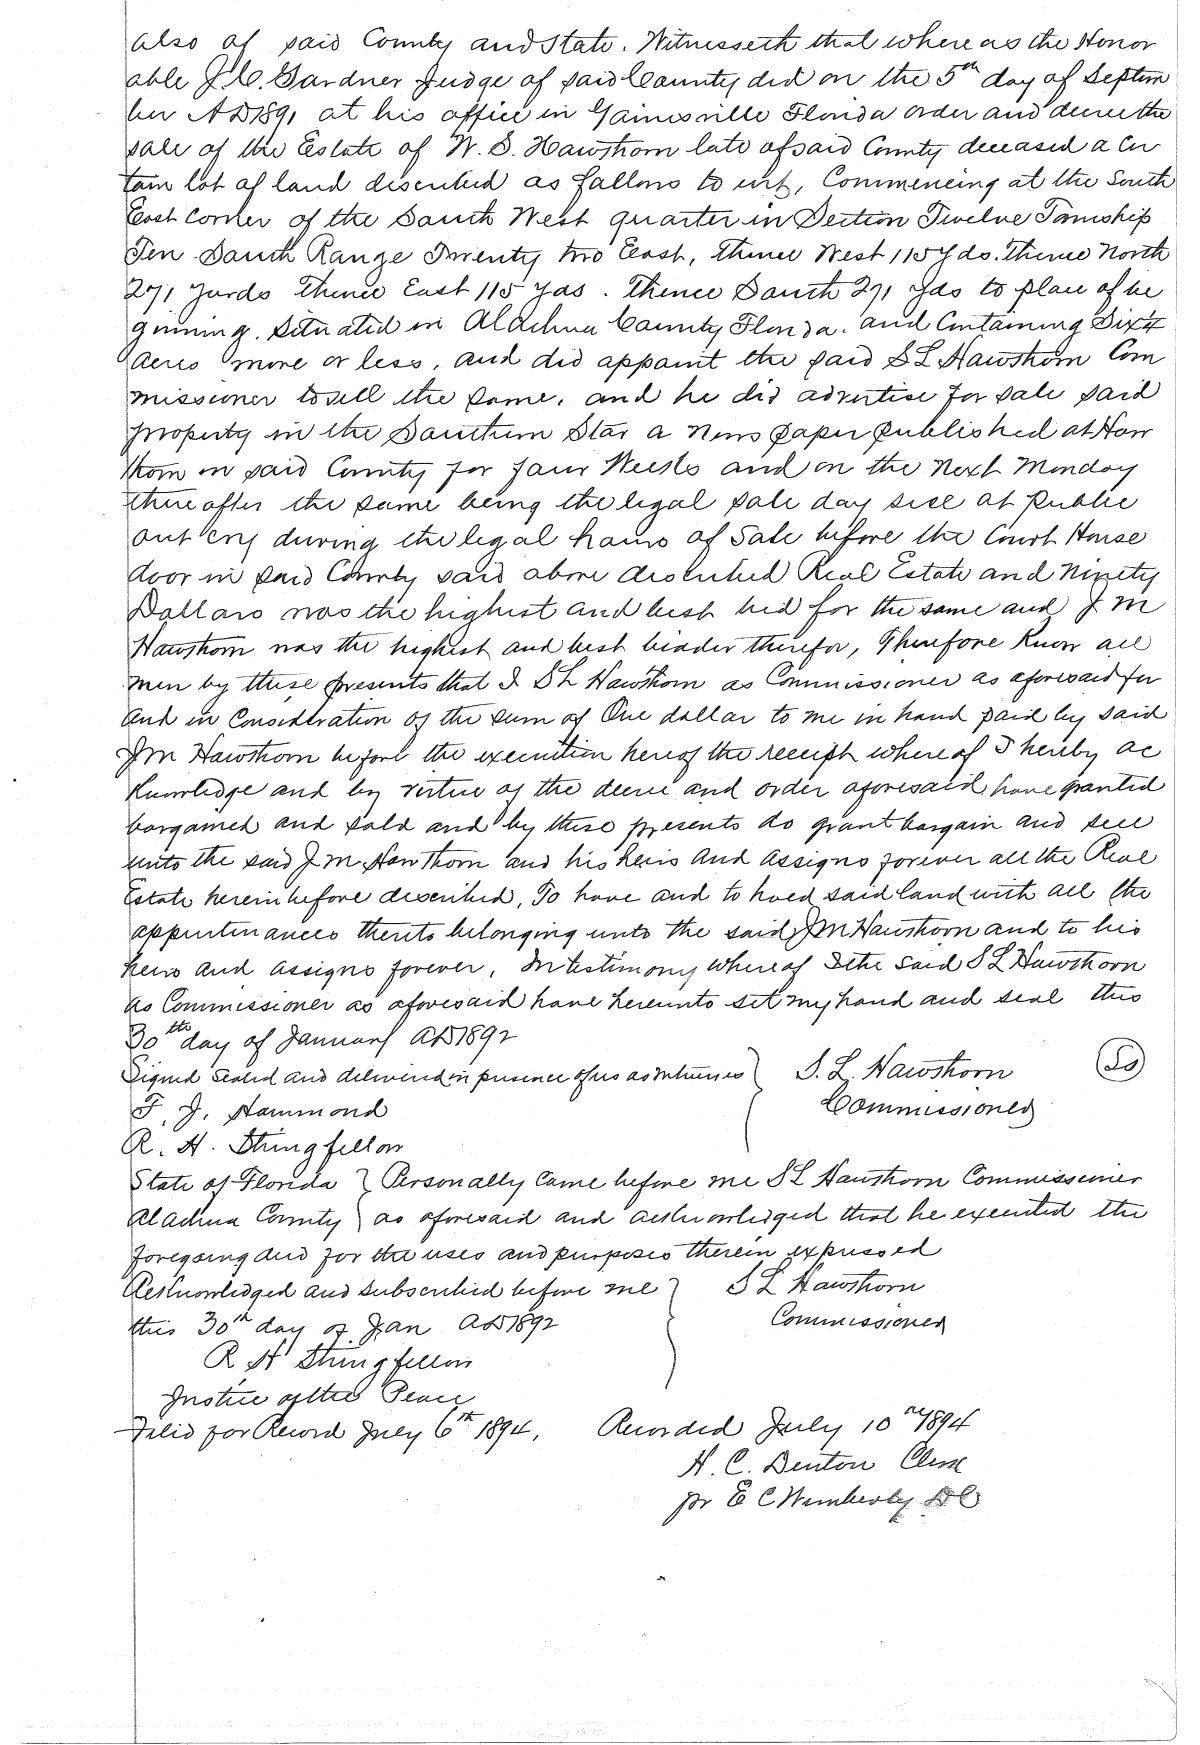 also of said County and State. Witnesseth that where as the Honor
able J. C. Gardner Judge of said County did on the 5th day of Septem
ber AD 1891 at his office in Gainesville Florida order and decree the
sale of the Estate of W. S. Hawthorn late of said County deceased a Cer
tain lot of land described as follows to wit, Commencing at the South
East Corner of the South West quarter in Section Twelve Township
Ten South Range Twenty two East, thence West 115 Yds. thence North
271 Yards thence East 115 yds. thence South 271 Yds to place of be
ginning. Situated in Alachua County Florida. and Containing Six 1/4
acres more or less, and did appoint the said S L Hawthorn Com
missioner to sell the same, and he did advertise for sale said
property in the Southern Star a News paper published at Haw
thorn in said County for four Weeks and on the Next Monday
there after the same being the legal sale day sell at public
out cry during the legal hours of Sale before the Court House
door in said County said above described Real Estate and Ninety
Dollars was the highest and best bid for the same and J. M
Hawthorn was the highest and best bidder therefor, Therefore Know all
men by these presents that I S L Hawthorn as Commissioner as aforesaid for
and in Consideration of the sum of One dollar to me in hand paid by said
J M Hawthorn before the execution hereof the receipt where of I hereby ac
knowledge and by virtue of the decree and order aforesaid, have granted
bargained and sold and by these presents do grant bargain and sell
unto the said J. M. Hawthorn and his heirs and assigns forever all the Real
Estate herein before described, To have and to hold said land with all the
appurtinances thereto belonging unto the said J M Hawthorn and to his
heirs and assigns forever, In testimony Where of I the said S L Hawthorn
as Commissioner as aforesaid have hereunto set my hand and seal this
30th day of January AD 1892
Signed Sealed and delivered in presence of us as witnesses } S. L. Hawthorn (LS)
F. J. Hammond Commissioner
R. H. Stringfellow
State of Florida } Personally Came before me S L Hawthorn Commissioner
Alachua County } as aforesaid and acknowledged that he executed the
foregoing deed for the uses and purposes therein expressed
Acknowledged and subscribed before me } S L Hawthorn
this 30th day of Jan AD 1892 Commissioner
R H Stringfellow
Justice of the Peace
Filed for Record July 6th 1894, Recorded July 10th 1894
H. C. Denton Clerk
pr E C Wimberly DC